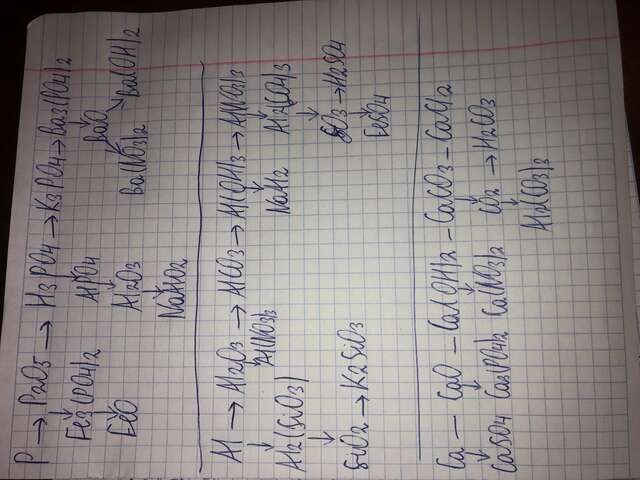 P → P2O5 → H3PO4 → K3PO4 → Ba3(PO4)2
↓ ↓ ↓
Fe3(PO4)2 AlPO4 BaO → Ba(OH)2
↓ ↓ ↓
FeO Al2O3 Ba(NO3)2
↓
NaAlO2
Al → Al2O3 → AlCO3 → Al(OH)3 → Al(NO3)3
↓ ↓ ↓ ↓
Al2(SiO3) Al(NO3)3 NaAl2 Al2(SO4)3
↓ ↓
SiO2 → K2SiO3 SO3 → H2SO4
↓
FeSO4
Ca — CaO — Ca(OH)2 — CaCO3 — CaCl2
↓ ↓ ↓ ↓
CaSO4 Ca3(PO4)2 Ca(NO3)2 CO2 → H2CO3
↓
Al2(CO3)3